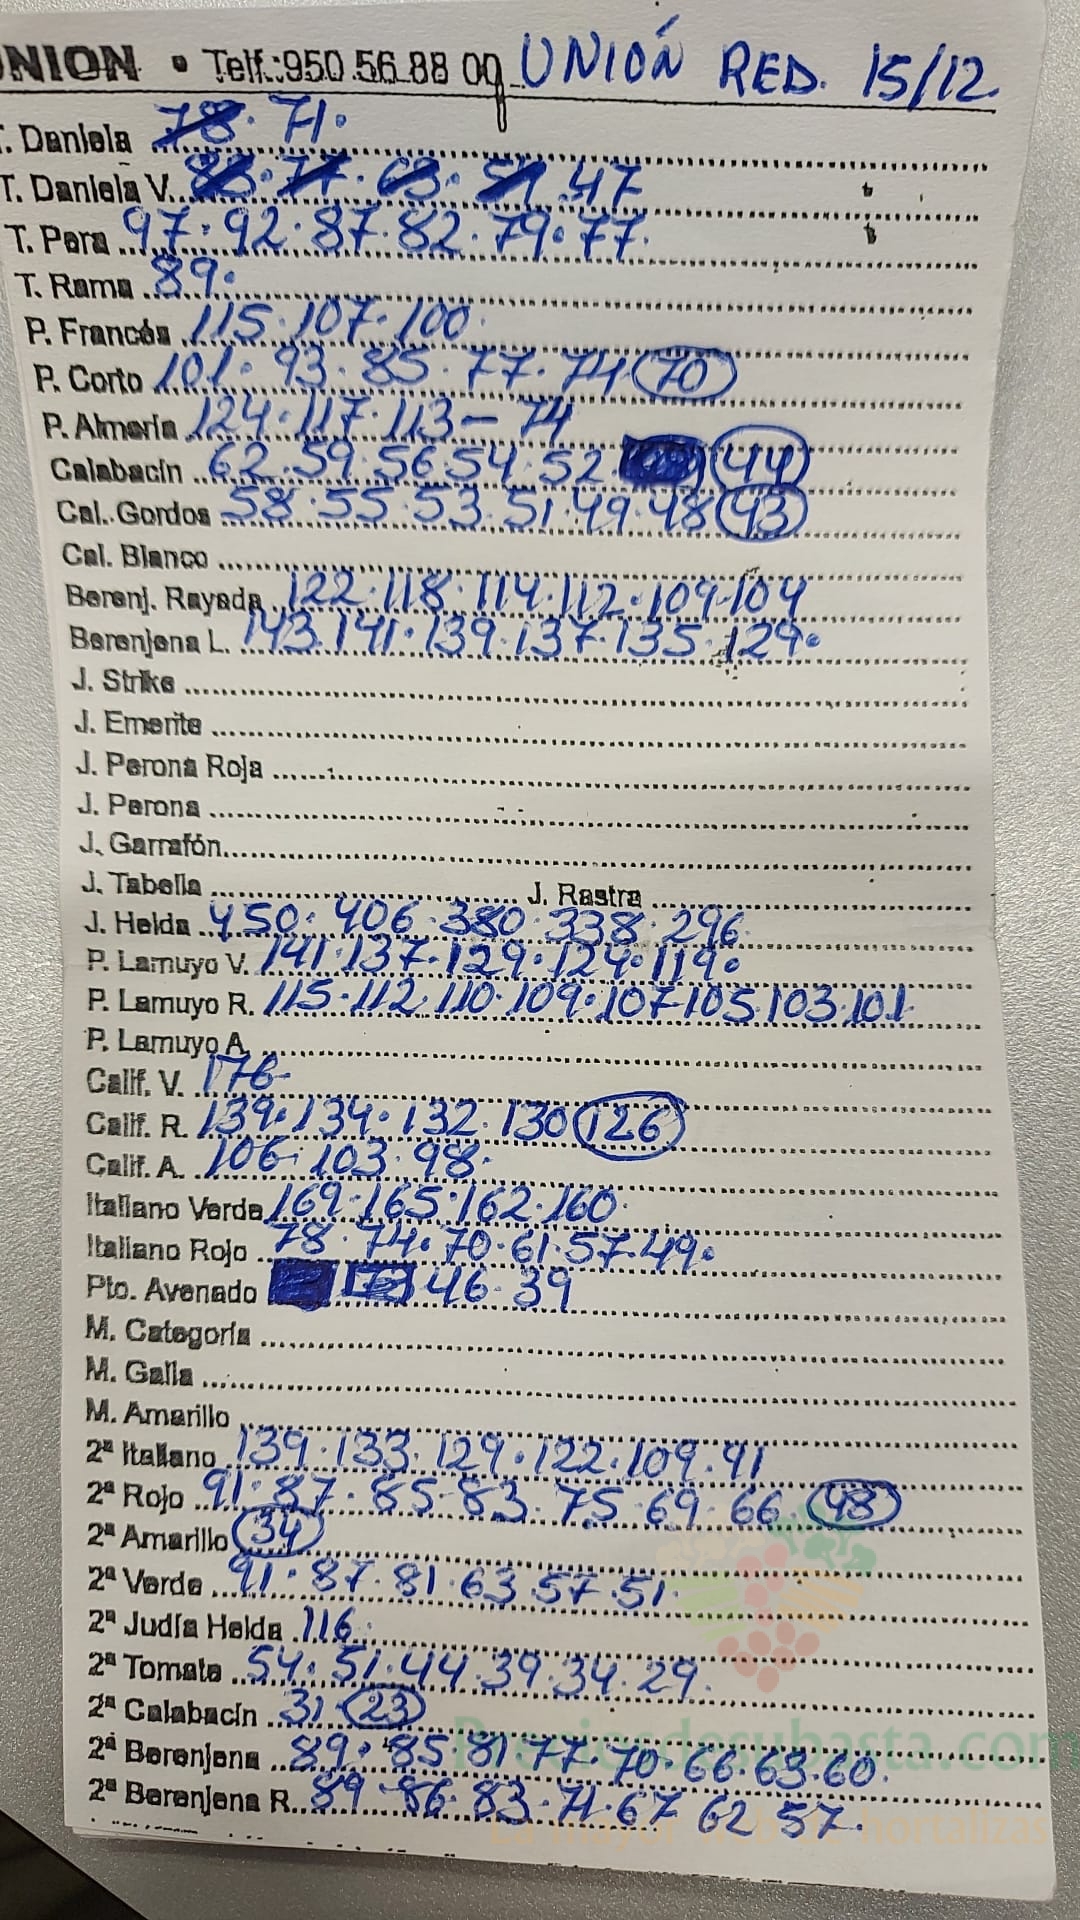 UNION • Telf.:950.56.88 00 UNIÓN RED. 15/12.
T. Daniela 78. 71.
T. Daniela V. 47
T. Pera 97. 92. 87. 82. 79. 77.
T. Rama 89.
P. Francés 115. 107. 100.
P. Corto 101. 93. 85. 77. 74. 70
P. Almería 124. 117. 113 – 74
Calabacín 62. 59. 56. 54. 52 44
Cal. Gordos 58. 55. 53. 51. 49. 48 43
Cal. Blanco
Berenj. Rayada 122. 118. 114. 112. 109. 104
Berenjena L. 143. 141. 139. 137. 135. 129.
J. Strike
J. Emerite
J. Perona Roja
J. Perona
J. Garrafón
J. Tabella J. Rastra
J. Helda 450. 406. 380. 338. 296.
P. Lamuyo V. 141. 137. 129. 124. 119.
P. Lamuyo R. 115. 112. 110. 109. 107. 105. 103. 101
P. Lamuyo A.
Calif. V. 176
Calif. R. 139. 134. 132. 130 126
Calif. A. 106. 103. 98.
Italiano Verde 169. 165. 162. 160.
Italiano Rojo 78. 74. 70. 61. 57. 49.
Pto. Avenado 46. 39
M. Categoría
M. Galia
M. Amarillo
2ª Italiano 139. 133. 129. 122. 109. 91
2ª Rojo 91. 87. 85. 83. 75. 69. 66. 48
2ª Amarillo 34
2ª Verde 91. 87. 81. 63. 57. 51.
2ª Judía Helda 116
2ª Tomate 54. 51. 44. 39. 34. 29.
2ª Calabacín 31. 23
2ª Berenjena 89. 85 81 77. 70. 66. 63. 60.
2ª Berenjena R. 89 86. 83. 71. 67 62 57.
Preciosdesubasta.com
La mayor web de hortalizas